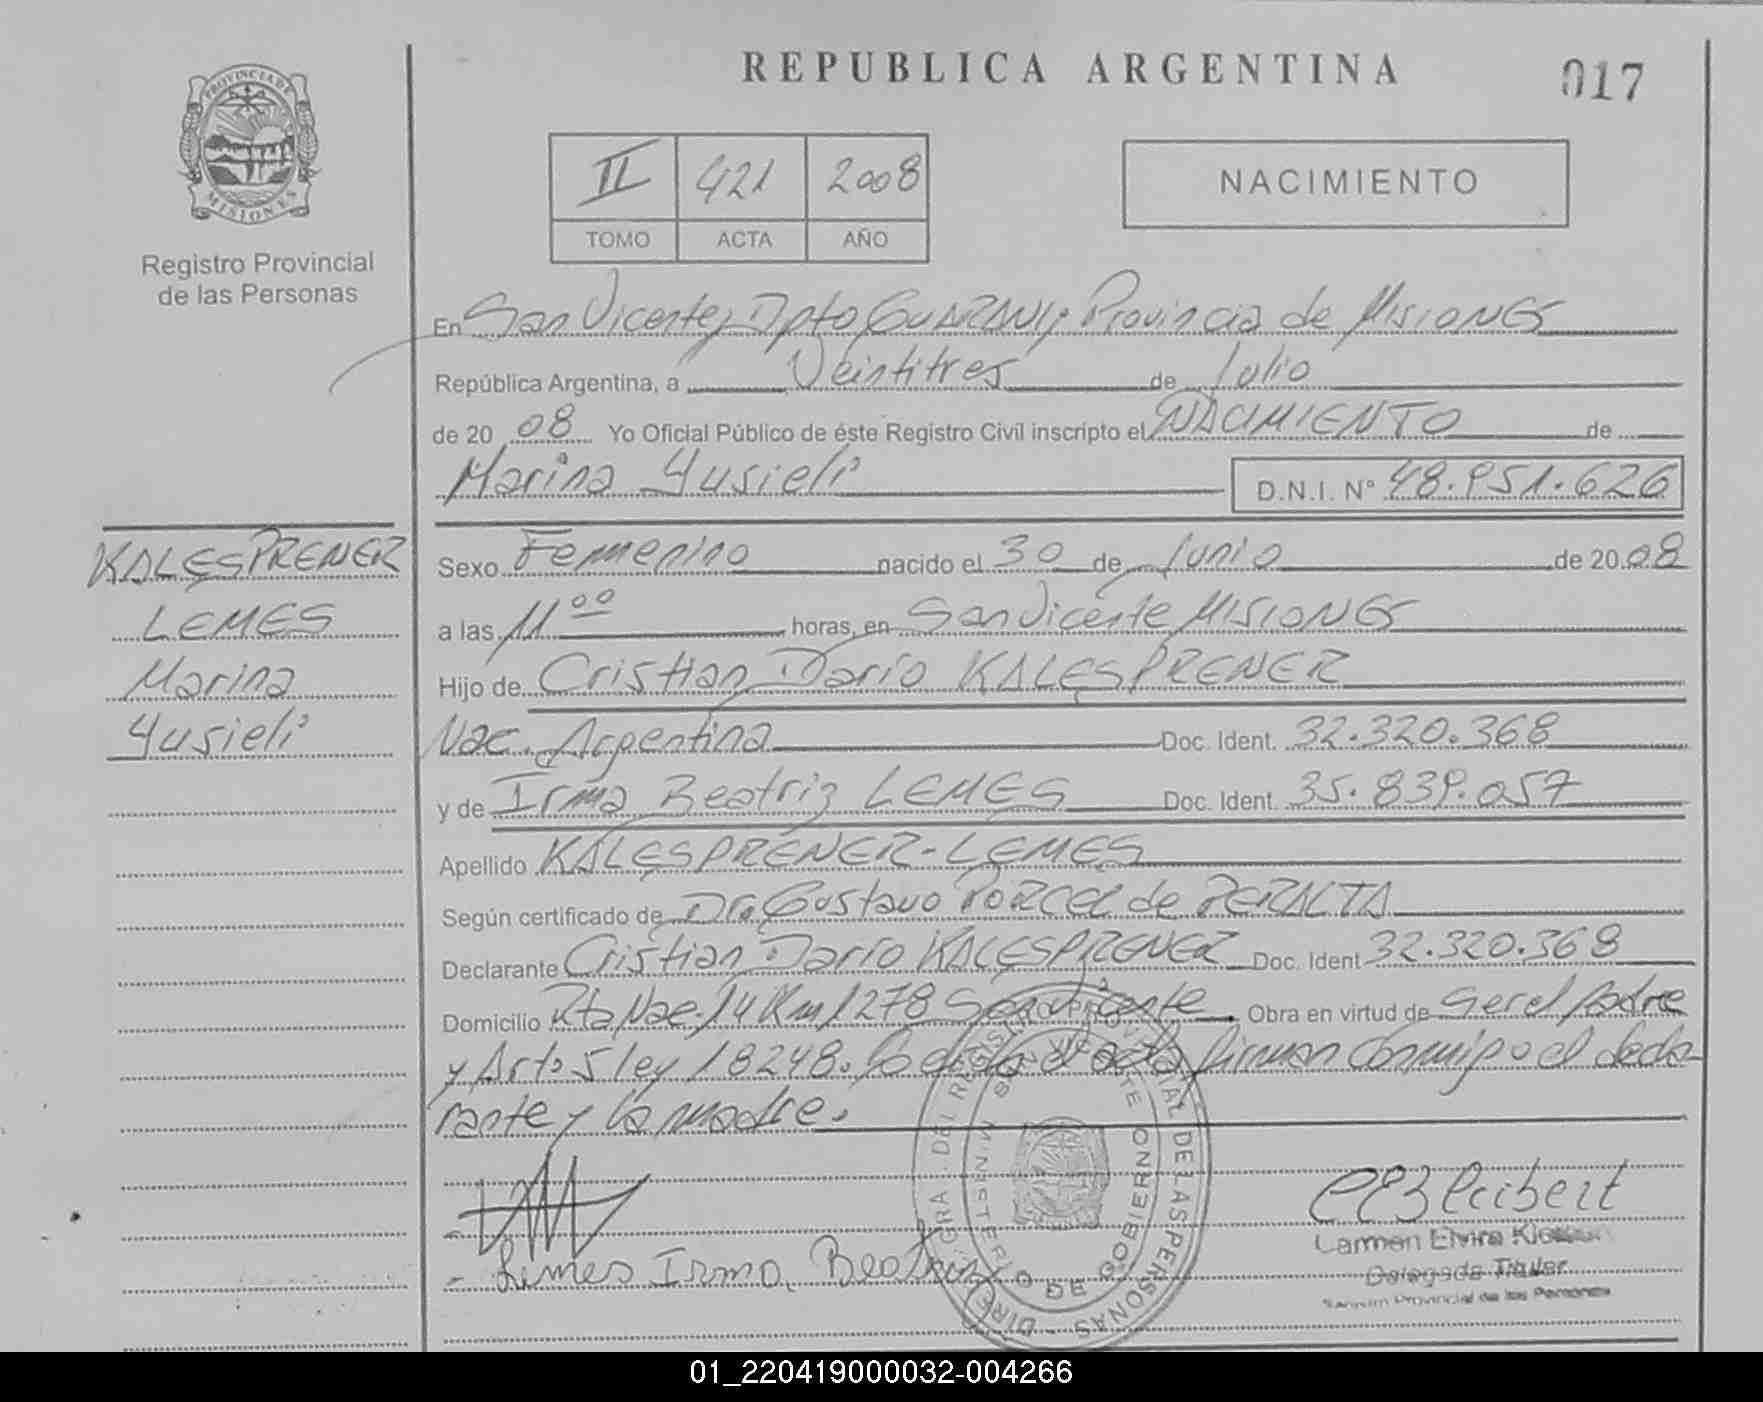 REPUBLICA ARGENTINA
017
PROVINCIA DE
MISIONES
Registro Provincial
de las Personas
II 421 2008
TOMO ACTA AÑO
NACIMIENTO
En San Vicente, Dpto GUARANI, Provincia de MISIONES
República Argentina, a Veintitres de Julio
de 2008 Yo Oficial Público de éste Registro Civil inscripto el NACIMIENTO de
Marina Yusieli D.N.I. N° 48.951.626
KALESPRENER
LEMES
Marina
Yusieli
Sexo Femenino nacido el 30 de Junio de 2008
a las 11 00 horas, en San Vicente MISIONES
Hijo de Cristian Darío KALESPRENER
Nac. Argentina Doc. Ident. 32.320.368
y de Irma Beatriz LEMES Doc. Ident. 35.839.057
Apellido KALESPRENER-LEMES
Según certificado de Dr. Gustavo PORCEL de PERALTA
Declarante Cristian Darío KALESPRENER Doc. Ident 32.320.368
Domicilio Rta Nac. 14 Km 1278 San Vicente. Obra en virtud de Ser el Padre
y Arto 5 ley 18248. acta, firman conmigo el decla
rante y la madre.
Lemes Irma, Beatriz
Carmen Elvira
Delegada Titular
Registro Provincial de las Personas
01_220419000032-004266